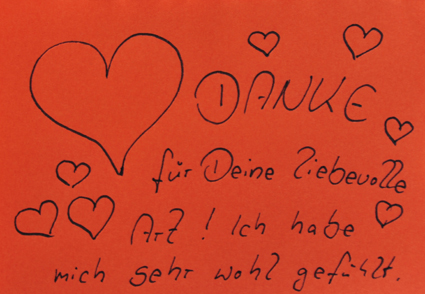 DANKE
für Deine liebevolle
Art! Ich habe
mich sehr wohl gefühlt.